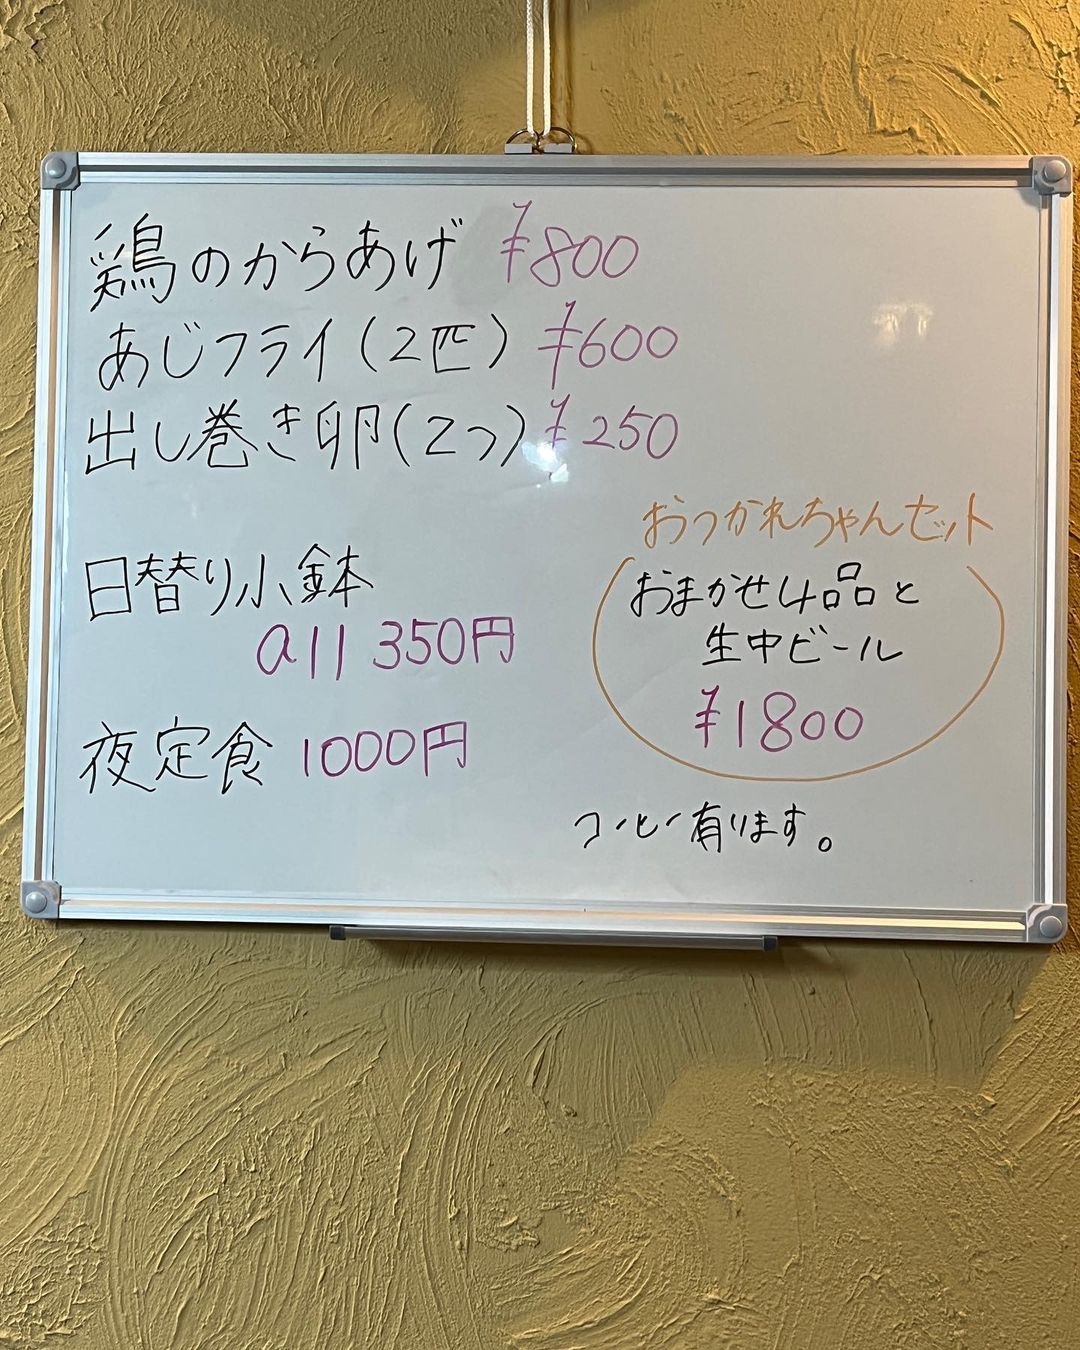 鶏のからあげ ¥800
あじフライ(2匹) ¥600
出し巻き卵(2つ) ¥250
日替り小鉢
all 350円
夜定食 1000円
おつかれちゃんセット
おまかせ4品と
生中ビール
¥1800
コーヒー有ります。